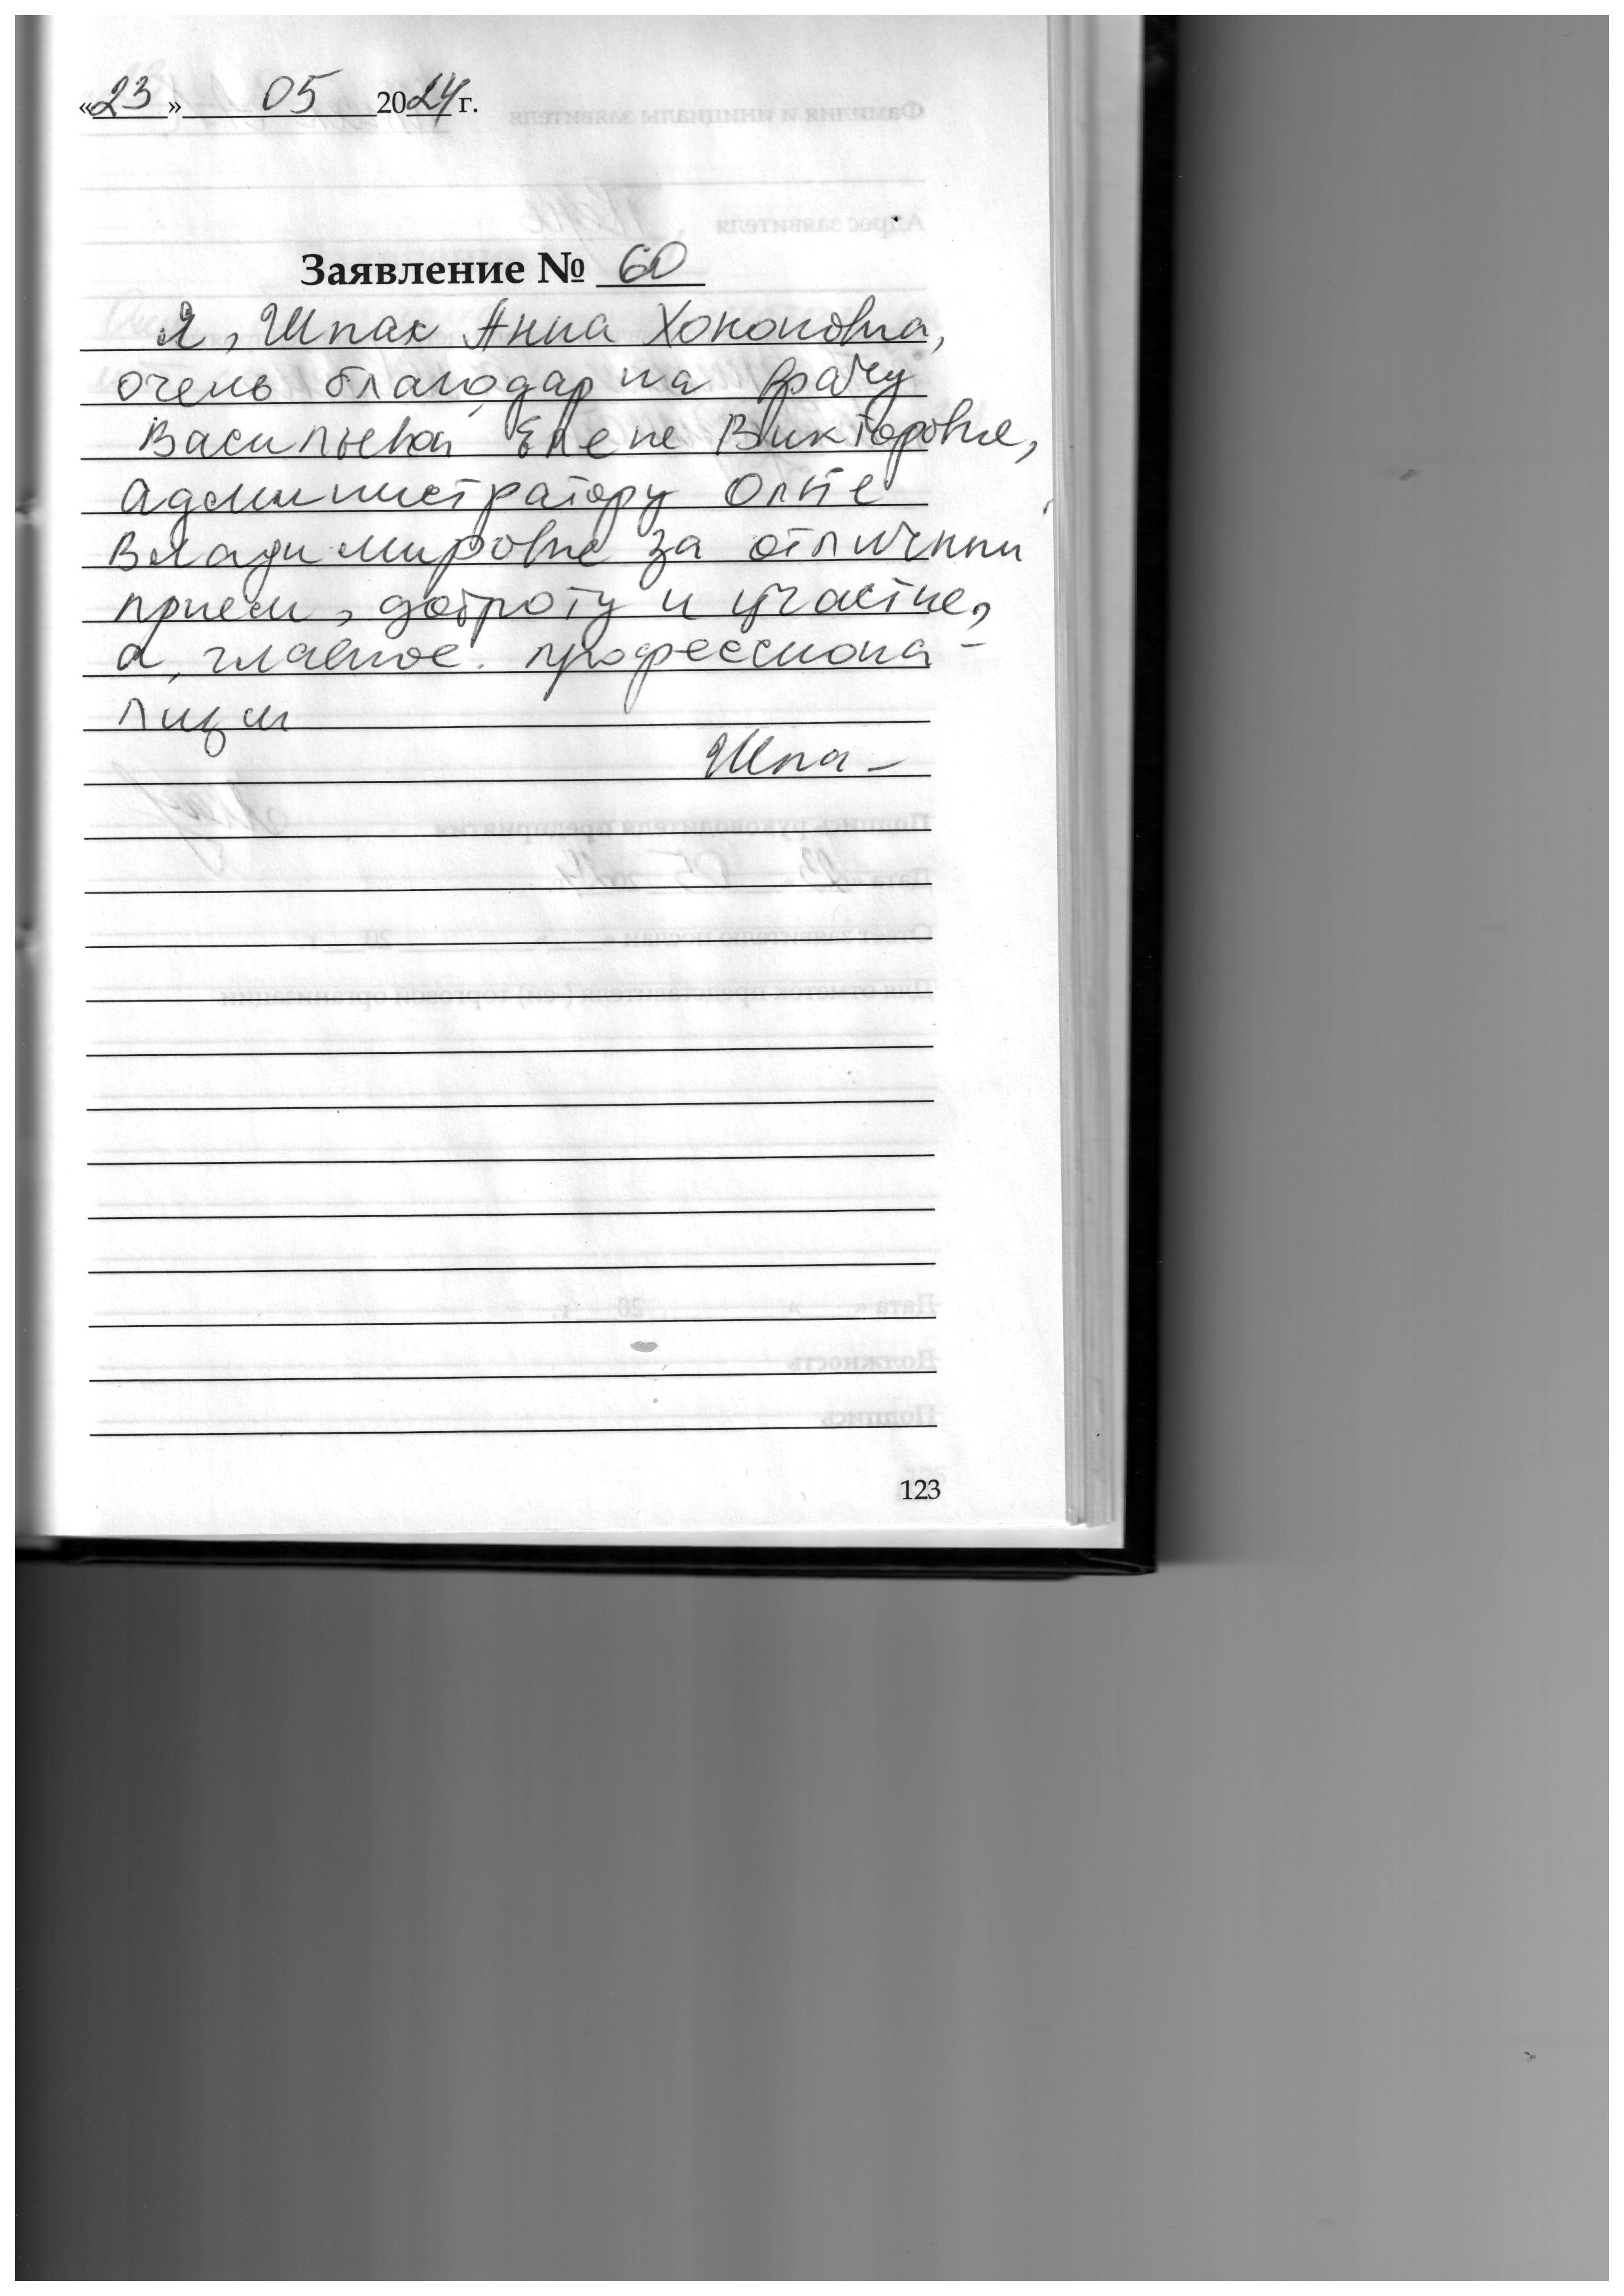 «23» 05 2024 г.
Заявление № 60
Я, Шпак Анна Хононовна,
очень благодарна врачу
Васильевой Елене Викторовне,
администратору Ольге
Владимировне за отличный
прием, доброту и участие,
а, главное. профессиона-
лизм
Шпа
123